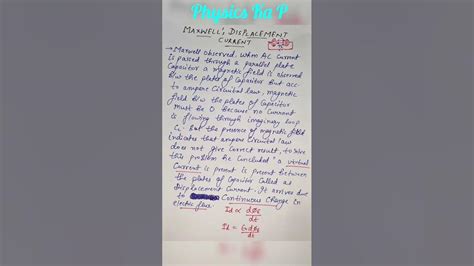 Physics Ka P
MAXWELL'S DISPLACEMENT
CURRENT
→ Maxwell observed, when AC current
is passed through a parallel plate
Capacitor a magnetic field is observed
b/w the plates of Capacitor But acc
to ampere Circuital law, magnetic
field b/w the plates of Capacitor
must be 0 because no Current
is flowing through imaginary loop
C₁. But the presence of magnetic field
indicates that ampere circuital law
does not give correct result, to solve
this problem he concluded "a virtual
Current is present is present between
the plates of Capacitor Called as
displacement Current. It arrives due
to Continuous Change in
electric flux.
Id ∝ dϕE/dt
Id = ε₀dϕE/dt